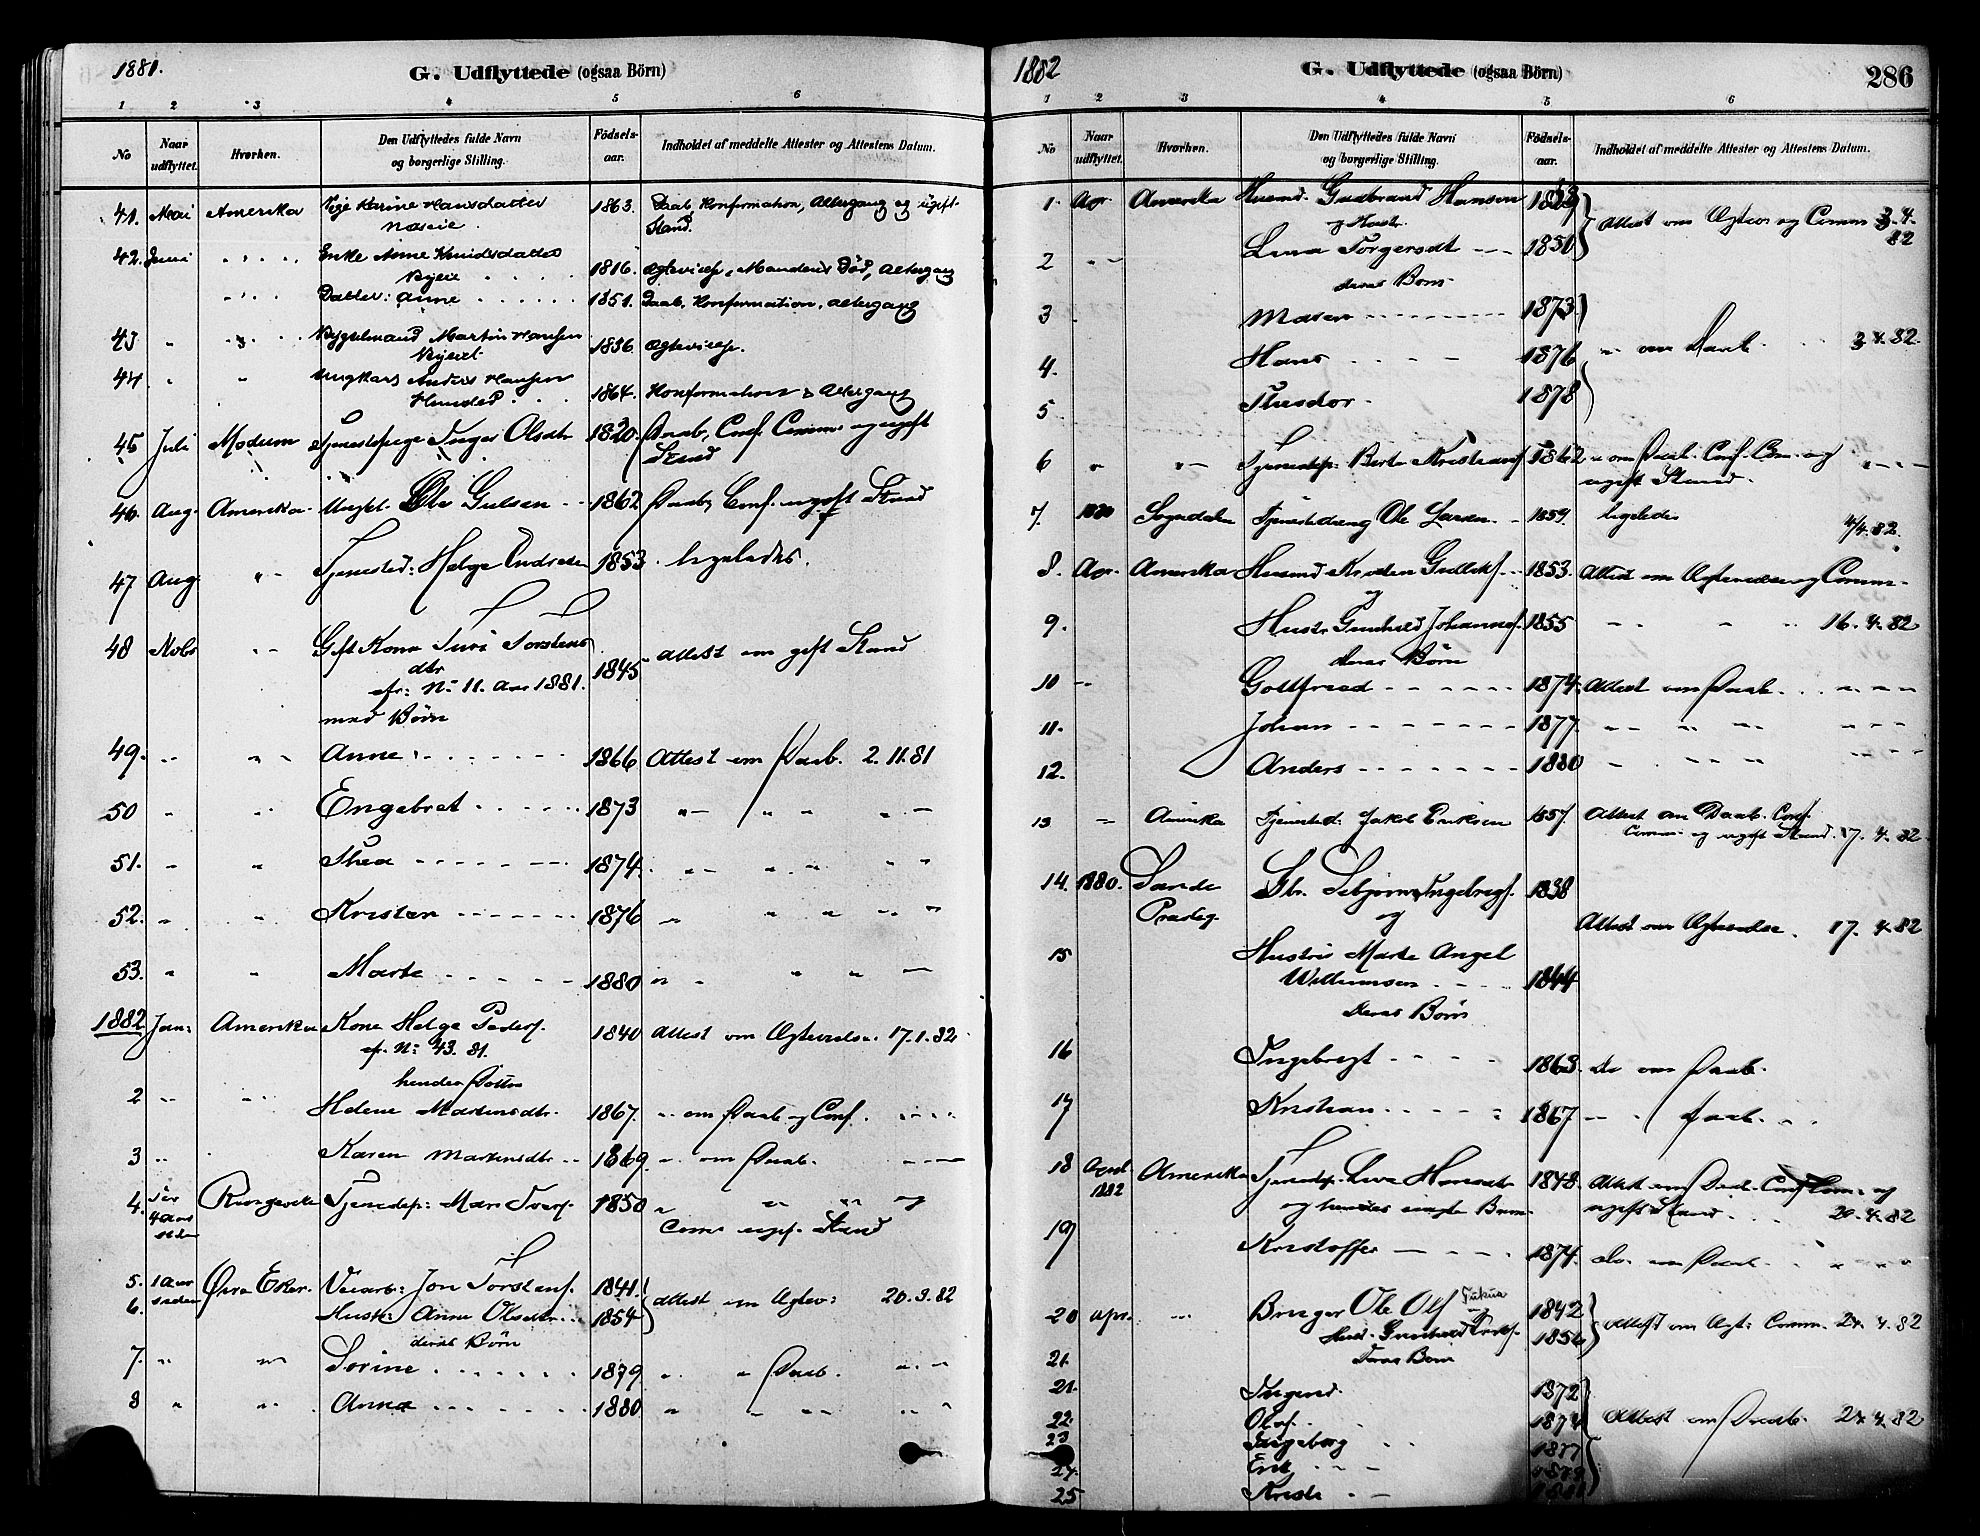 1881.
G. Udflyttede (ogsaa Börn)
1 2 3 4 5 6
No
Naar udflyttet.
Hvorhen.
Den Udflyttedes fulde Navn og borgerlige Stilling.
Födsels-aar.
Indholdet af meddelte Attester og Attestens Datum.
41. Mai Amerika Pige Karine Hansdatter 1863. Daab, Konfirmation, Altergang og ugift
Stand.
42. Juni " " " Enke Anne Knudsdatter
1816. Ægtevielse, Mandens Död, Altergang
" " " Datter: Anne 1851. Daab, Konfirmation, Altergang
43 " Martin Hansen
1836 Ægtevielse.
44 " " Ungkarl Anders Hansen
1864. Konfirmation & Altergang
45 Juli Modum Tjenestepige Inger Olsdtr 1820. Daab, Conf. Comm. og ugift
Stand
46. Aug. Amerika Ungk. Ole Gulsen 1862 Daab, Conf. ugift Stand
47 Aug " - Tjenested: Helge Endresen 1853. ligeledes.
48 Novbr " " Gift Kone Turi Torstens
dtr 1845 Attest om gift Stand
cfr: No 11. Aar 1881.
med Börn
49. " " Anne 1866 Attest om Daab. 2.11.81
50 " " Engebret 1873 " " " "
51. " " Thea 1874. " " " "
52. " " Kristen 1876 " " " " "
53. " " Marte 1880 " " " "
1882 Jan: Amerika Kone Helge Peders. 1840 Attest om Ægtevielse. 17.1.82
cfr. No: 43. 81.
hendes Döttre
2 " " Helene Martinsdtr. 1867. " om Daab og Conf. " "
3 " Karen Martinsdtr. 1869. " om Daab. "
4. for 4 Aar siden Ringerike Tjenestep: Mari Ivers. 1850 " " " og
Comm ugift Stand
5. 1 Aar siden Övre Eker. Veiarb: Jon Torstens. 1841.
6. Hustr: Anne Olsdtr. 1854 Attest om Ægtev: 20.3.82
deres Börn
7. " " Sorine 1879 " " Daab. " "
8 " " Anna 1880 " " " " "
1882
G. Udflyttede (ogsaa Börn)
286
1 2 3 4 5 6
No
Naar udflyttet.
Hvorhen.
Den Udflyttedes fulde Navn og borgerlige Stilling.
Födsels-aar.
Indholdet af meddelte Attester og Attestens Datum.
1. Apr. Amerika Husmd. Gudbrand Hansen
og Hustr. Attest om Ægtev. og Comm 3.4.
82
2 " " Lena Torgersdt 1850
deres Börn
3 Maren 1873
4. Hans 1876 " om Daab. 3.4.82.
5 1878
6 " " - Tjenestep: Berte Kristians. 1862 " om Daab. Conf. Com. og
ugift Stand.
7. 1880 Sogndalen Tjenestedreng Ole Larsen 1859. ligeledes
4/4.82.
8. Apr. Amerika Husmd Kristen Gulliks. 1853. Attest om Ægtevielse og Comm.
og
9. Hustr. Gunhild Johannes. 1855 " " " 16.4.82
deres Börn
10 " Gottfried 1874. Attest om Daab. " " "
11. Johan 1877. " " " " "
12. Anders 1880 " " " "
13 " Amerika Tjenested: Jakob Eriksen 1857. Attest om Daab. Conf.
Comm. og ugift Stand. 17.4.82
14. 1880. Sande Præsteg. Gbr. Ingebregts. 1838
og
Attest om Ægtevielse. 17.4.82
15 Hustru Marte Angel
Willumsen 1844
deres Börn
16 Ingebregt 1863. do om Daab.
17 Kristian 1867 " " Daab.
18 April 1882 Amerika Tjenestep. Live Hansdtr 1848. Attest om Daab. Conf. Com. og
og hendes uægte Barn ugift Stand. 20.4.82
19 Kristoffer 1874. do. om Daab. " " "
20 Apr. " Bruger Ole Ols. og 1842
Hust. Gunhild 1850 Attest om Ægt: Comm. 24.4.82
21. deres Börn
21. Ingrid 1872
22. Olaf 1874 Attest om Daab. 24.4.82
23 Ingeborg 1877
24. Erik 1879
25 Kristi